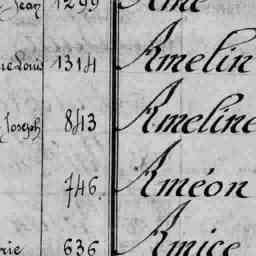 Jean 1299 Amé
Louis 1314 Amelin
Joseph 843 Ameline
746 Améon
636 Amice